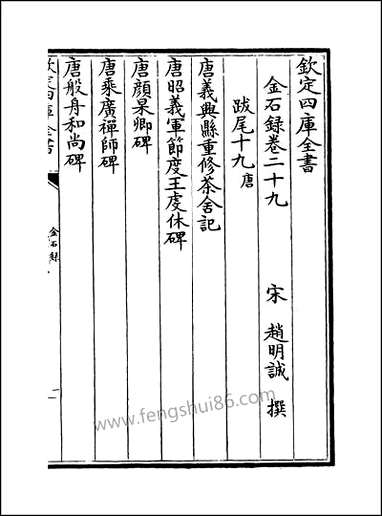 欽定四庫全書
金石録卷二十九
宋 趙明誠 撰
跋尾十九 唐
唐義興縣重修茶舍記
唐昭義軍節度王䖍休碑
唐顔杲卿碑
唐乘廣禪師碑
唐般舟和尚碑
金石録
www.fengshui86.com